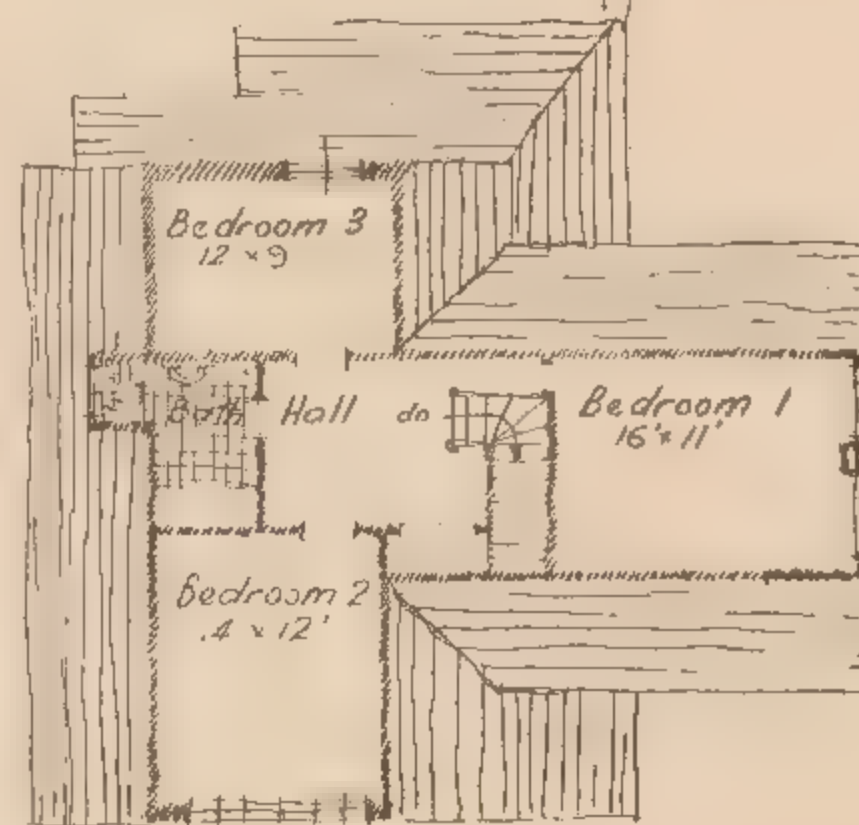 Bedroom 3
12 × 9
Bath Hall dn Bedroom 1
16' × 11'
Bedroom 2
.4 × 12'